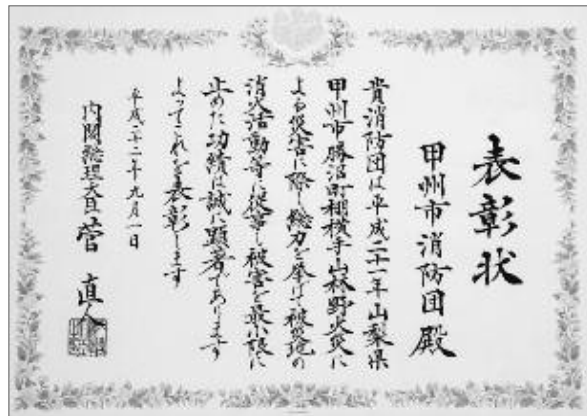 表彰状
甲州市消防団殿
貴消防団は平成二十一年山梨県
甲州市勝沼町棚横手山林野火災に
よる災害に際し総力を挙げて被災地の
消火活動等に従事し被害を最小限に
止めた功績は誠に顕著であります
よってこれを表彰します
平成二十二年九月一日
内閣総理大臣 菅 直人